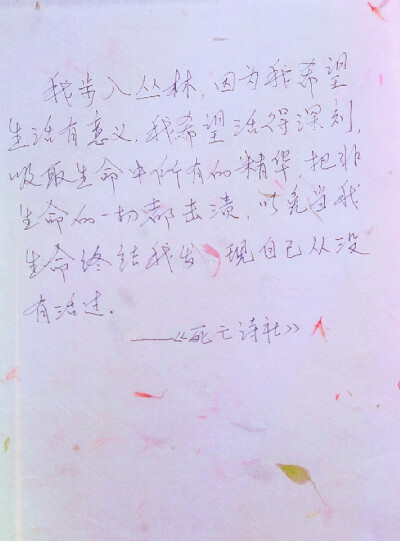 我步入丛林,因为我希望
生活有意义,我希望活得深刻,
吸取生命中所有的精华,把非
生命的一切都击溃,以免当我
生命终结我发现自己从没
有活过.
——《死亡诗社》